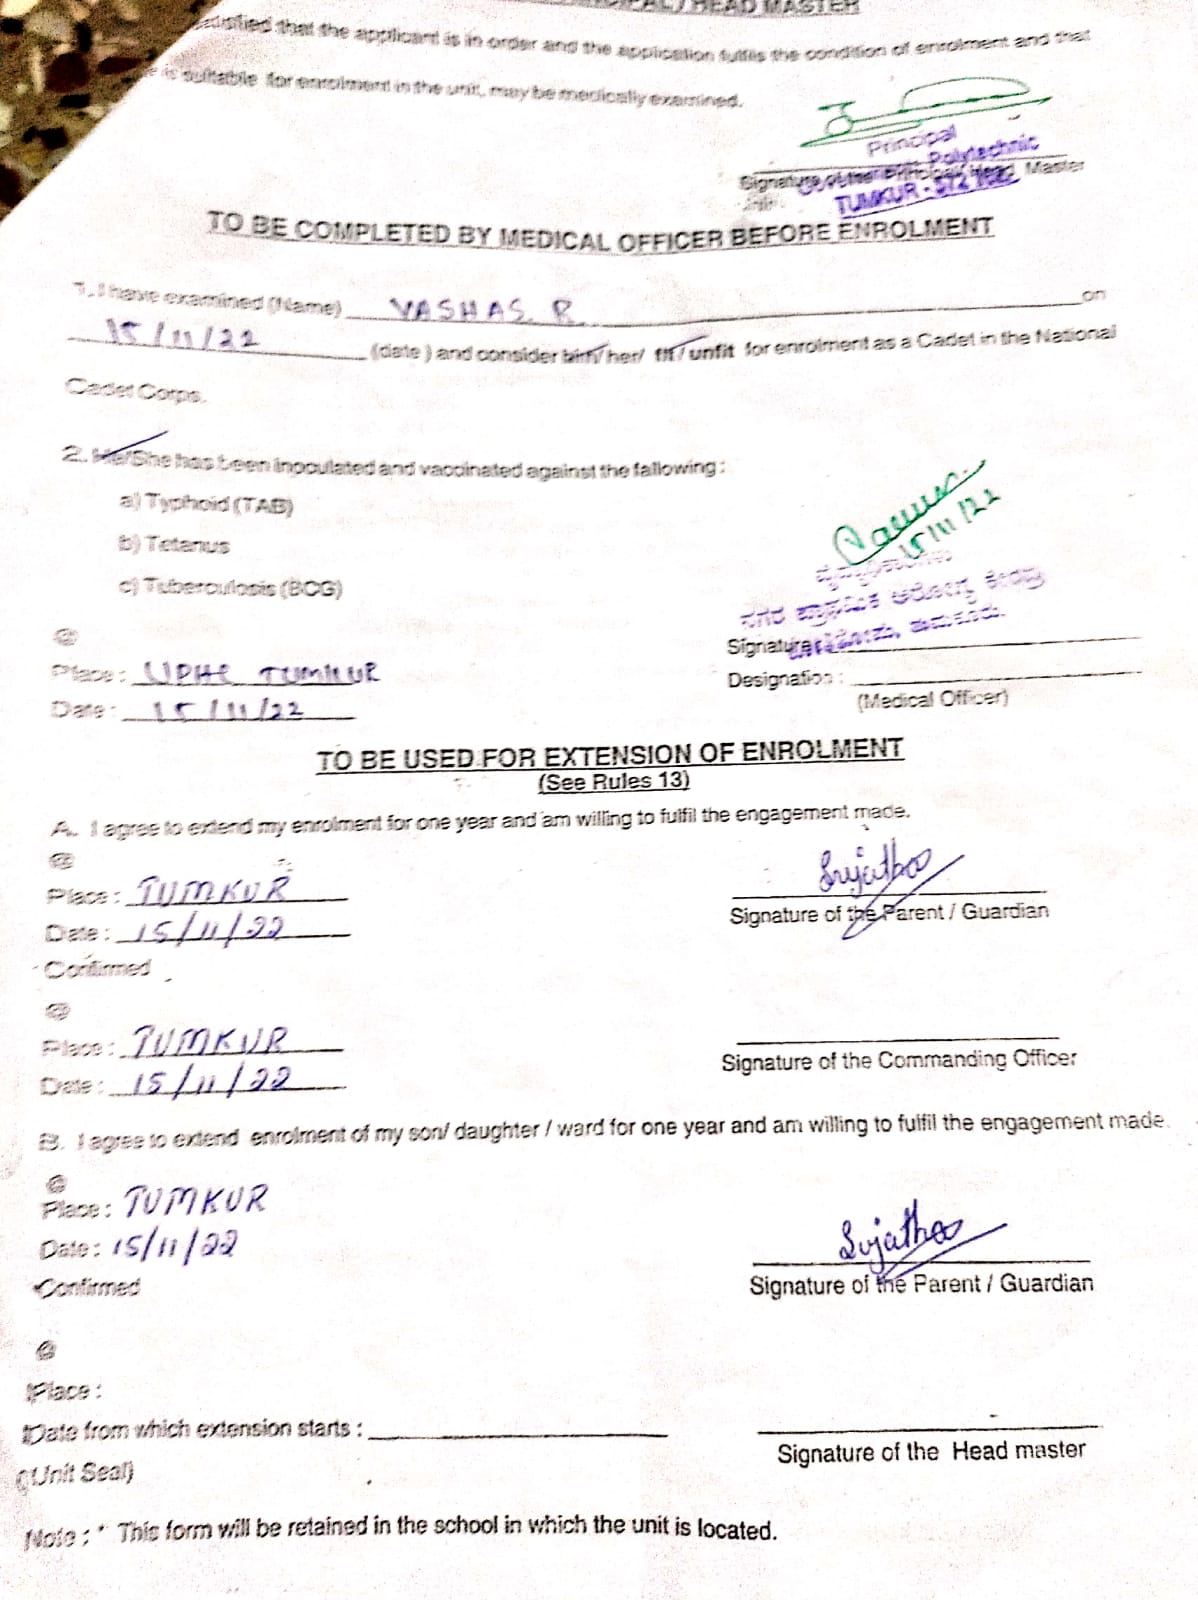 PAL / HEAD MASTER
satisfied that the applicant is in order and the application fulfils the condition of enrolment and that
is suitable for enrolment in the unit, may be medically examined.
Principal
Polytechnic
Signature of the Principal / Head Master
TUMKUR - 572
TO BE COMPLETED BY MEDICAL OFFICER BEFORE ENROLMENT
1. I have examined (Name) YASHAS. R on
15/11/22 (date ) and consider him/ her/ fit / unfit for enrolment as a Cadet in the National
Cadet Corps.
2. He/She has been inoculated and vaccinated against the fallowing :
a) Typhoid (TAB)
b) Tetanus
c) Tuberculosis (BCG)
15/11/22
ನಗರ ಪ್ರಾಥಮಿಕ ಆರೋಗ್ಯ ಕೇಂದ್ರ
ತುಮಕೂರು.
@
Signature
Place : UPHC TUMKUR
Designation :
(Medical Officer)
Date : 15/11/22
TO BE USED FOR EXTENSION OF ENROLMENT
(See Rules 13)
A. I agree to extend my enrolment for one year and am willing to fulfil the engagement made.
@
Place : TUMKUR
Sujatha
Signature of the Parent / Guardian
Date : 15/11/22
Confirmed
@
Place : TUMKUR
Signature of the Commanding Officer
Date : 15/11/22
B. I agree to extend enrolment of my son/ daughter / ward for one year and am willing to fulfil the engagement made.
@
Place : TUMKUR
Date : 15/11/22
Sujatha
Signature of the Parent / Guardian
Confirmed
@
Place :
Date from which extension starts :
Signature of the Head master
(Unit Seal)
Note : * This form will be retained in the school in which the unit is located.